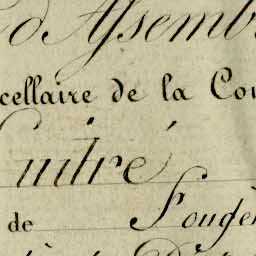 d'Assemb
cellaire de la Cou
Vitré
de Fougè